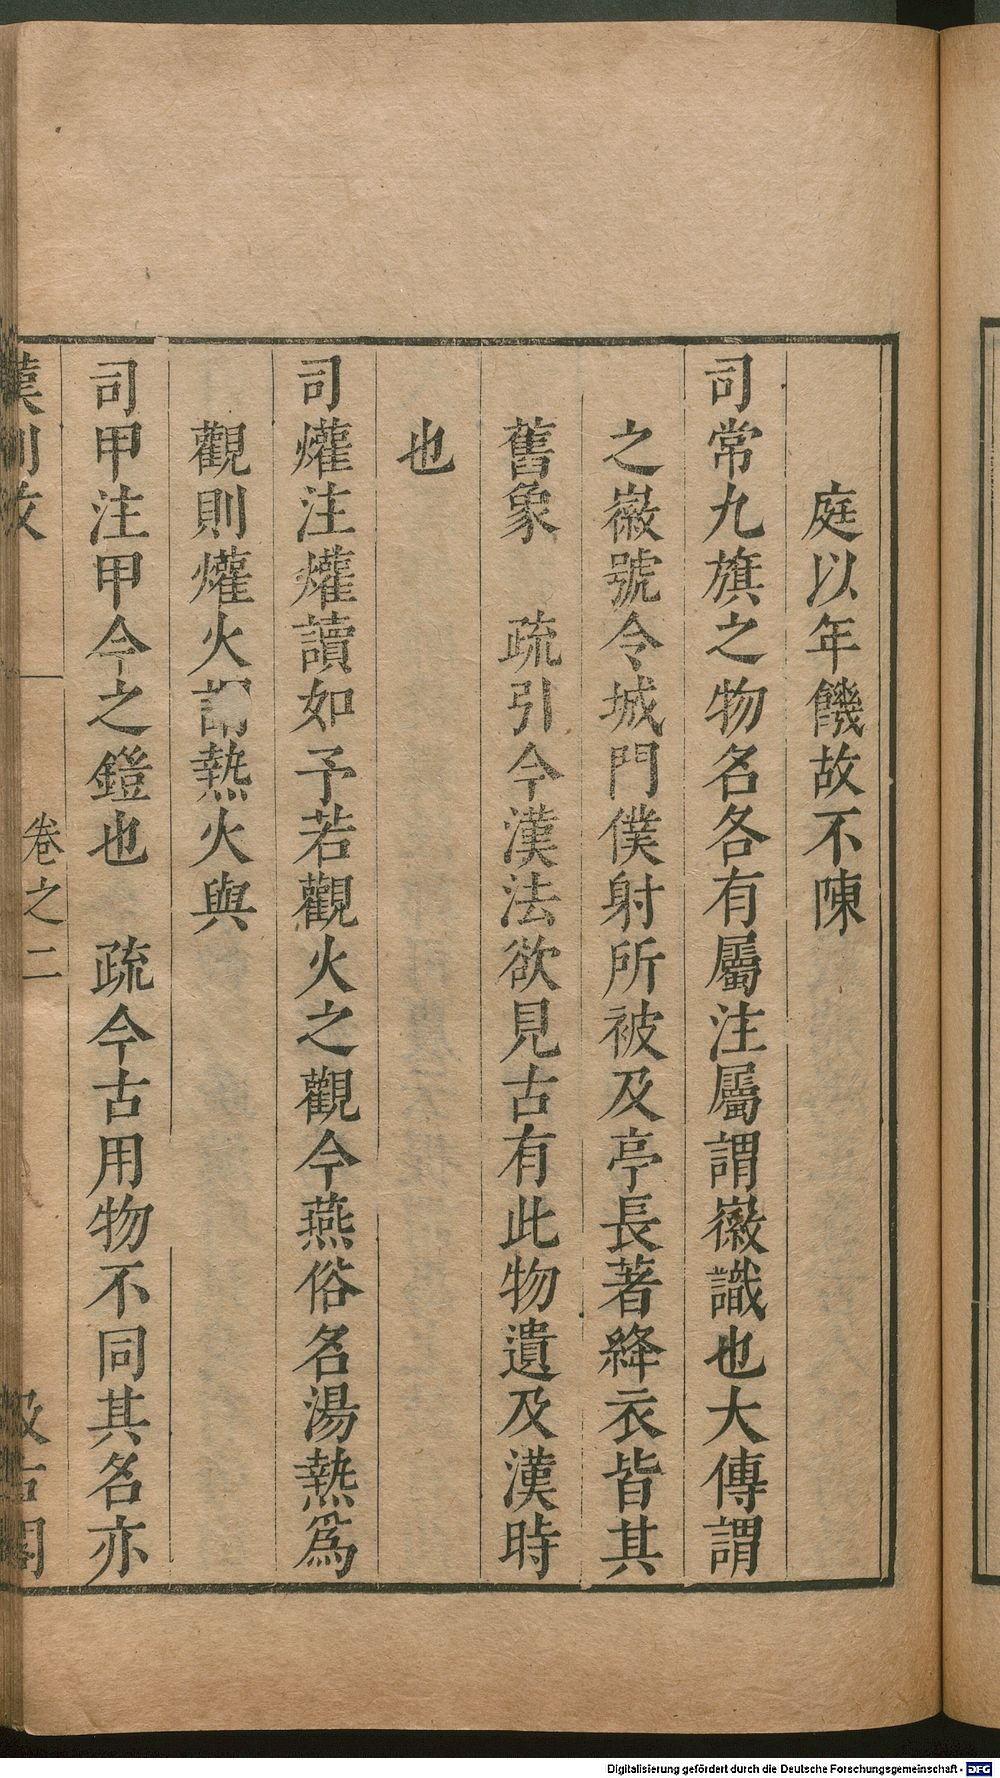 庭以年饑故不陳
司常九旗之物名各有屬注屬謂徽識也大傳謂
之徽號令城門僕射所被及亭長著絳衣皆其
舊象　疏引今漢法欲見古有此物遺及漢時
也
司爟注爟讀如予若觀火之觀今燕俗名湯熱爲
觀則爟火謂熱火與
司甲注甲今之鎧也　疏今古用物不同其名亦
漢制攷　卷之二　汲古閣
Digitalisierung gefördert durch die Deutsche Forschungsgemeinschaft - DFG